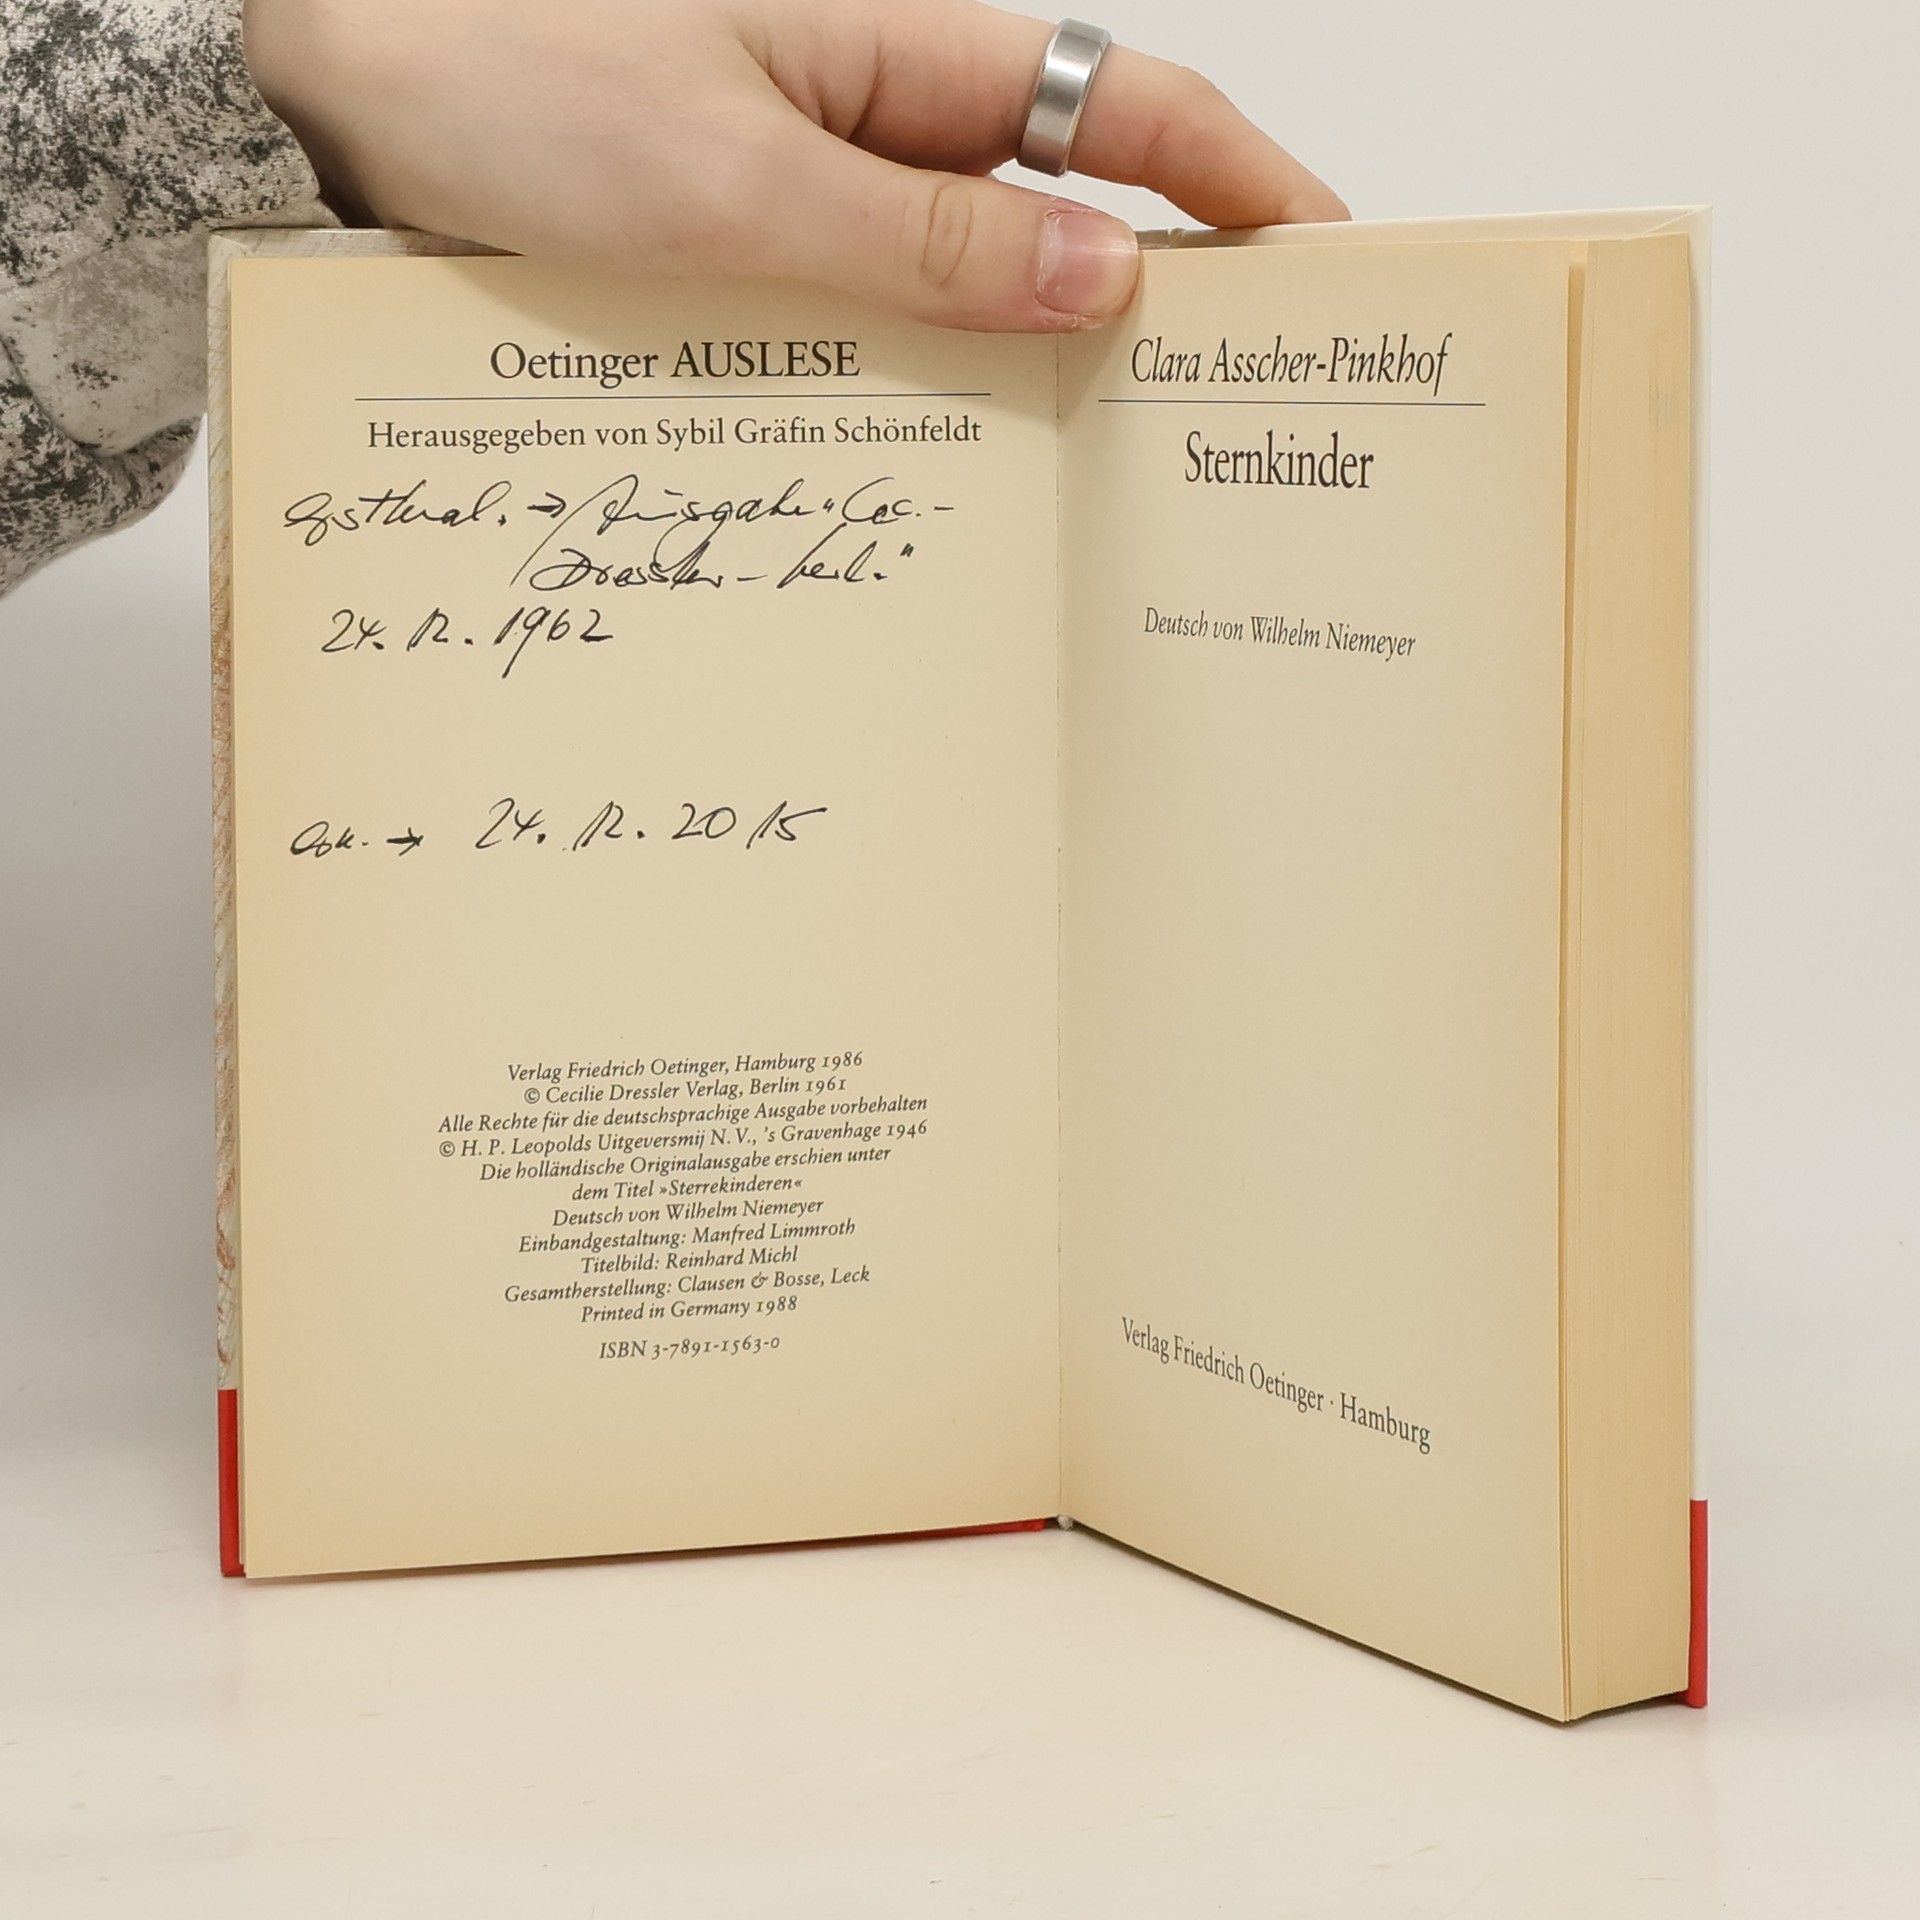 Oetinger AUSLESE
Herausgegeben von Sybil Gräfin Schönfeldt
→ Ausgabe "Cec.-
Dressler-Verl."
24. 12. 1962
→ 24. 12. 2015
Verlag Friedrich Oetinger, Hamburg 1986
© Cecilie Dressler Verlag, Berlin 1961
Alle Rechte für die deutschsprachige Ausgabe vorbehalten
© H. P. Leopolds Uitgeversmij N. V., 's Gravenhage 1946
Die holländische Originalausgabe erschien unter
dem Titel »Sterrekinderen«
Deutsch von Wilhelm Niemeyer
Einbandgestaltung: Manfred Limmroth
Titelbild: Reinhard Michl
Gesamtherstellung: Clausen & Bosse, Leck
Printed in Germany 1988
ISBN 3-7891-1563-0
Clara Asscher-Pinkhof
Sternkinder
Deutsch von Wilhelm Niemeyer
Verlag Friedrich Oetinger · Hamburg